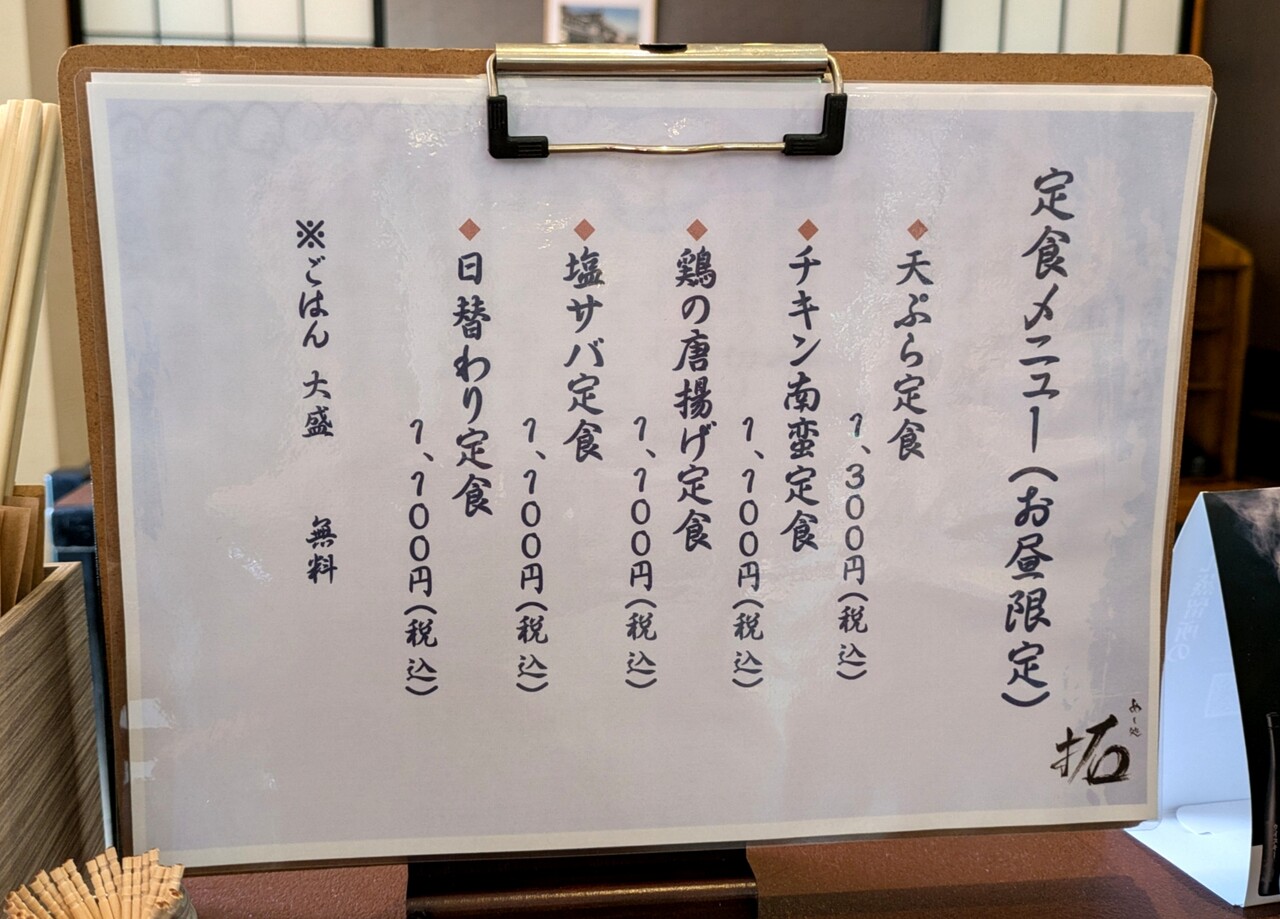 定食メニュー(お昼限定)
◆天ぷら定食
1、300円(税込)
◆チキン南蛮定食
1、100円(税込)
◆鶏の唐揚げ定食
1、100円(税込)
◆塩サバ定食
1、100円(税込)
◆日替わり定食
1、100円(税込)
※ごはん 大盛 無料
拓